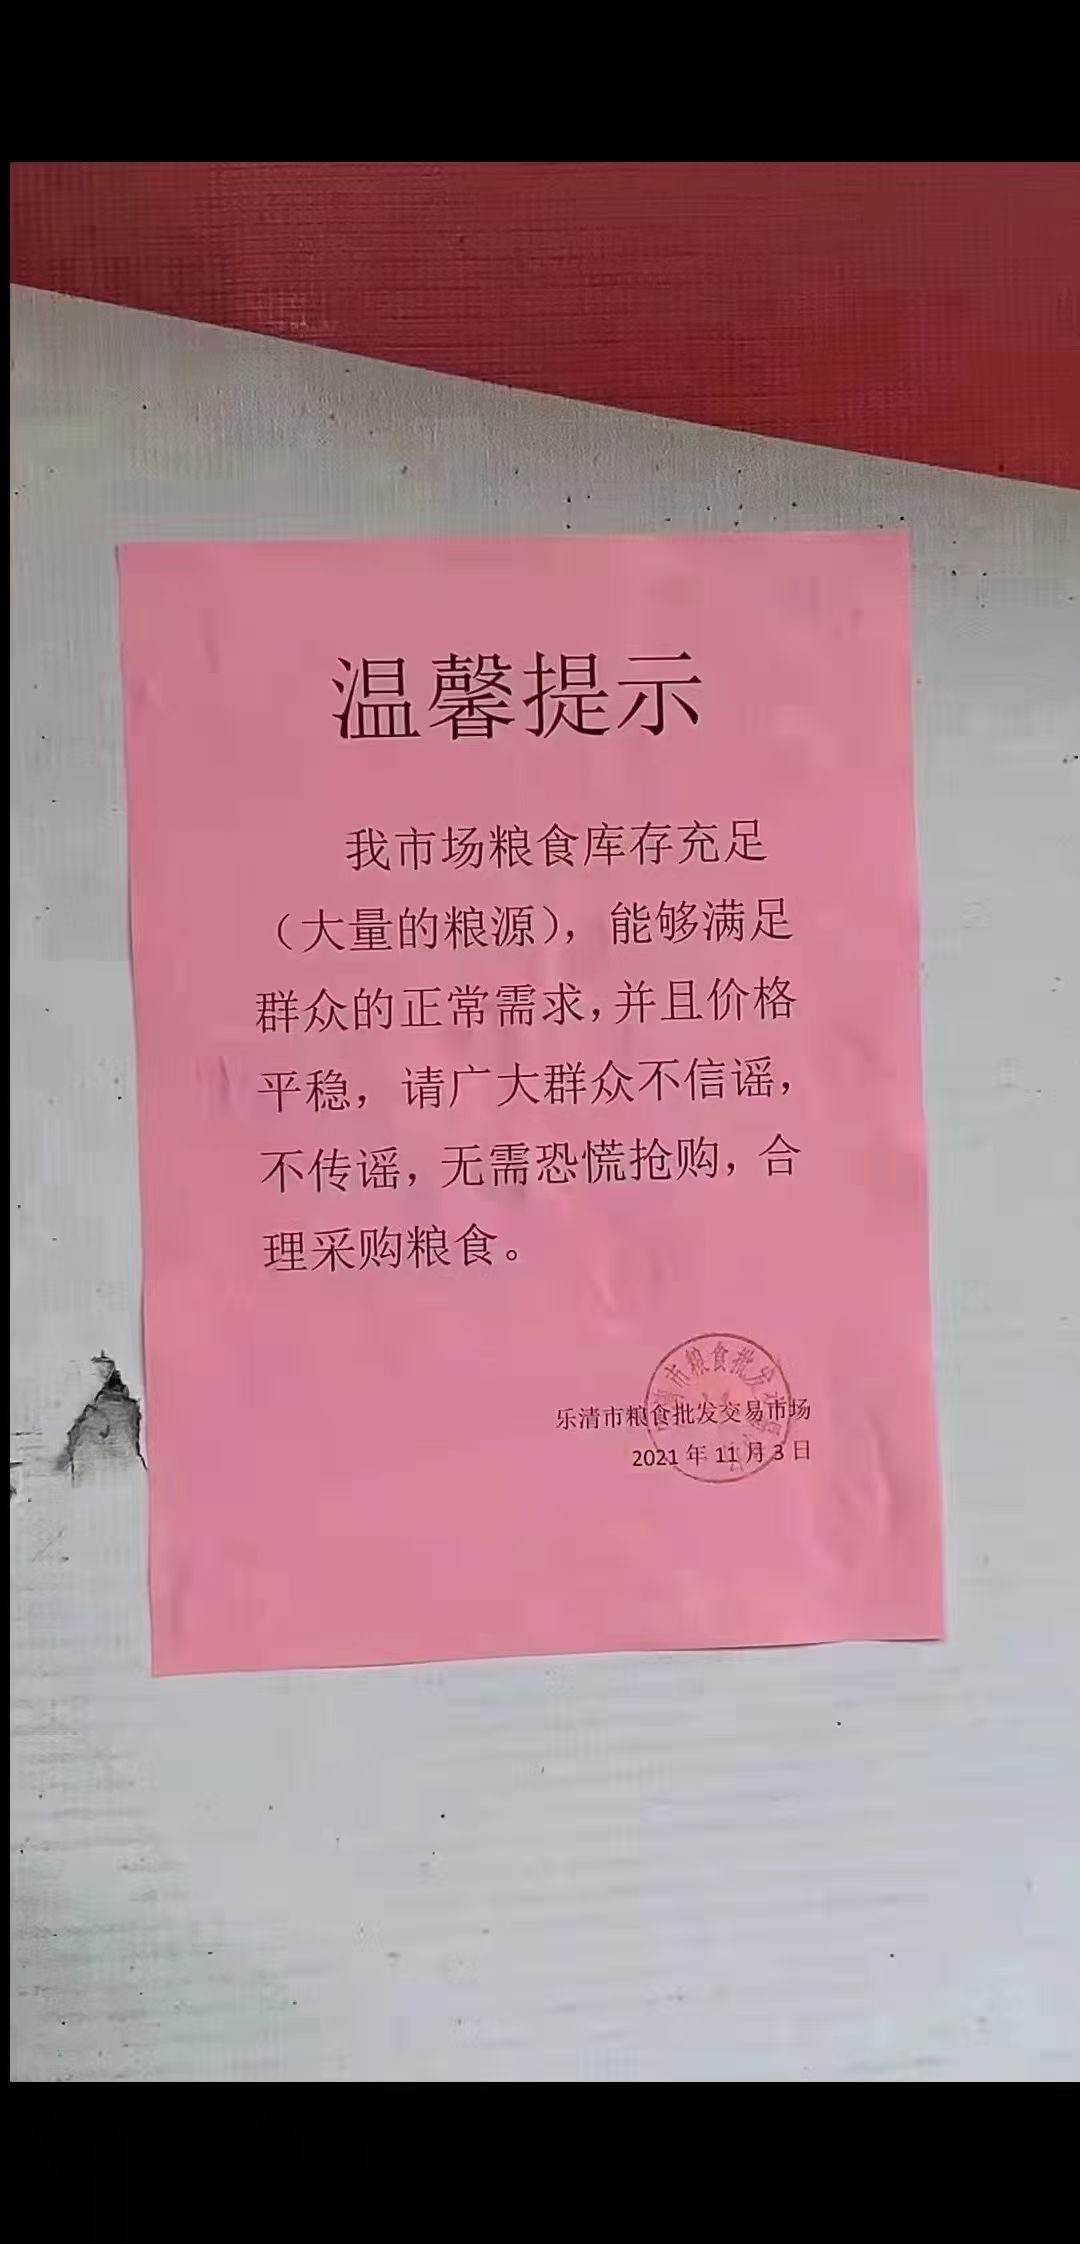 温馨提示
我市场粮食库存充足
（大量的粮源），能够满足
群众的正常需求，并且价格
平稳，请广大群众不信谣，
不传谣，无需恐慌抢购，合
理采购粮食。
市粮食批发
乐清市粮食批发交易市场
2021 年 11 月 3 日